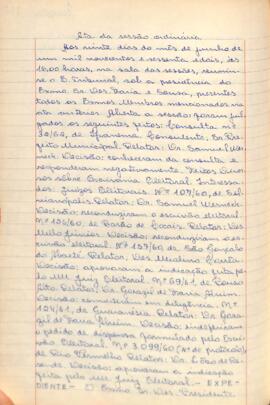 Ata da sessão ordinária
Aos vinte dias do mês de junho de
um mil novecentos e sessenta e dois, às
16,00 horas, na sala das sessões, reuniu-
se o E. Tribunal, sob a presidência do
Exmo. Sr. Des. Faria e Sousa, presentes
todos os Exmos. Membros mencionados na
ata anterior. Aberta a sessão foram jul-
gados os seguintes feitos: Consulta nº
30/62, de Ipanema. Consulente: Sr. Pre-
feito Municipal. Relator: Dr. Samuel Wer-
neck. Decisão: conheceram da consulta e
responderam negativamente. Feitos diver-
sos sôbre Escrivania Eleitoral. Interessa-
dos: Juízos Eleitorais. Nº 107/60, de
Relator: Dr. Samuel Werneck.
Decisão: reconduziram o escrivão eleitoral.
nº 136/60, de Barão de Cocais. Relator: Des.
Mello Júnior. Decisão: reconduziram o es-
crivão eleitoral. Nº 157/60, de São Gonçalo
do Abaeté. Relator: Des.
Decisão: aprovaram a indicação feita pe-
lo MM. Juiz Eleitoral. Nº 69/61, de Pouso
Alto. Relator: Dr.
Decisão: converteram em diligência. Nº
104/61, de Guaranésia. Relator: Dr.
Decisão: indeferiram
o pedido de dispensa formulado pelo Escri-
vão Eleitoral. Nº 3.099/60 (nº de protocolo),
de Rio Vermelho. Relator: Dr.
Decisão: aprovaram a indicação
feita pelo MM. Juiz Eleitoral. - EXPE-
DIENTE - O Exmo. Sr. Des. Presidente